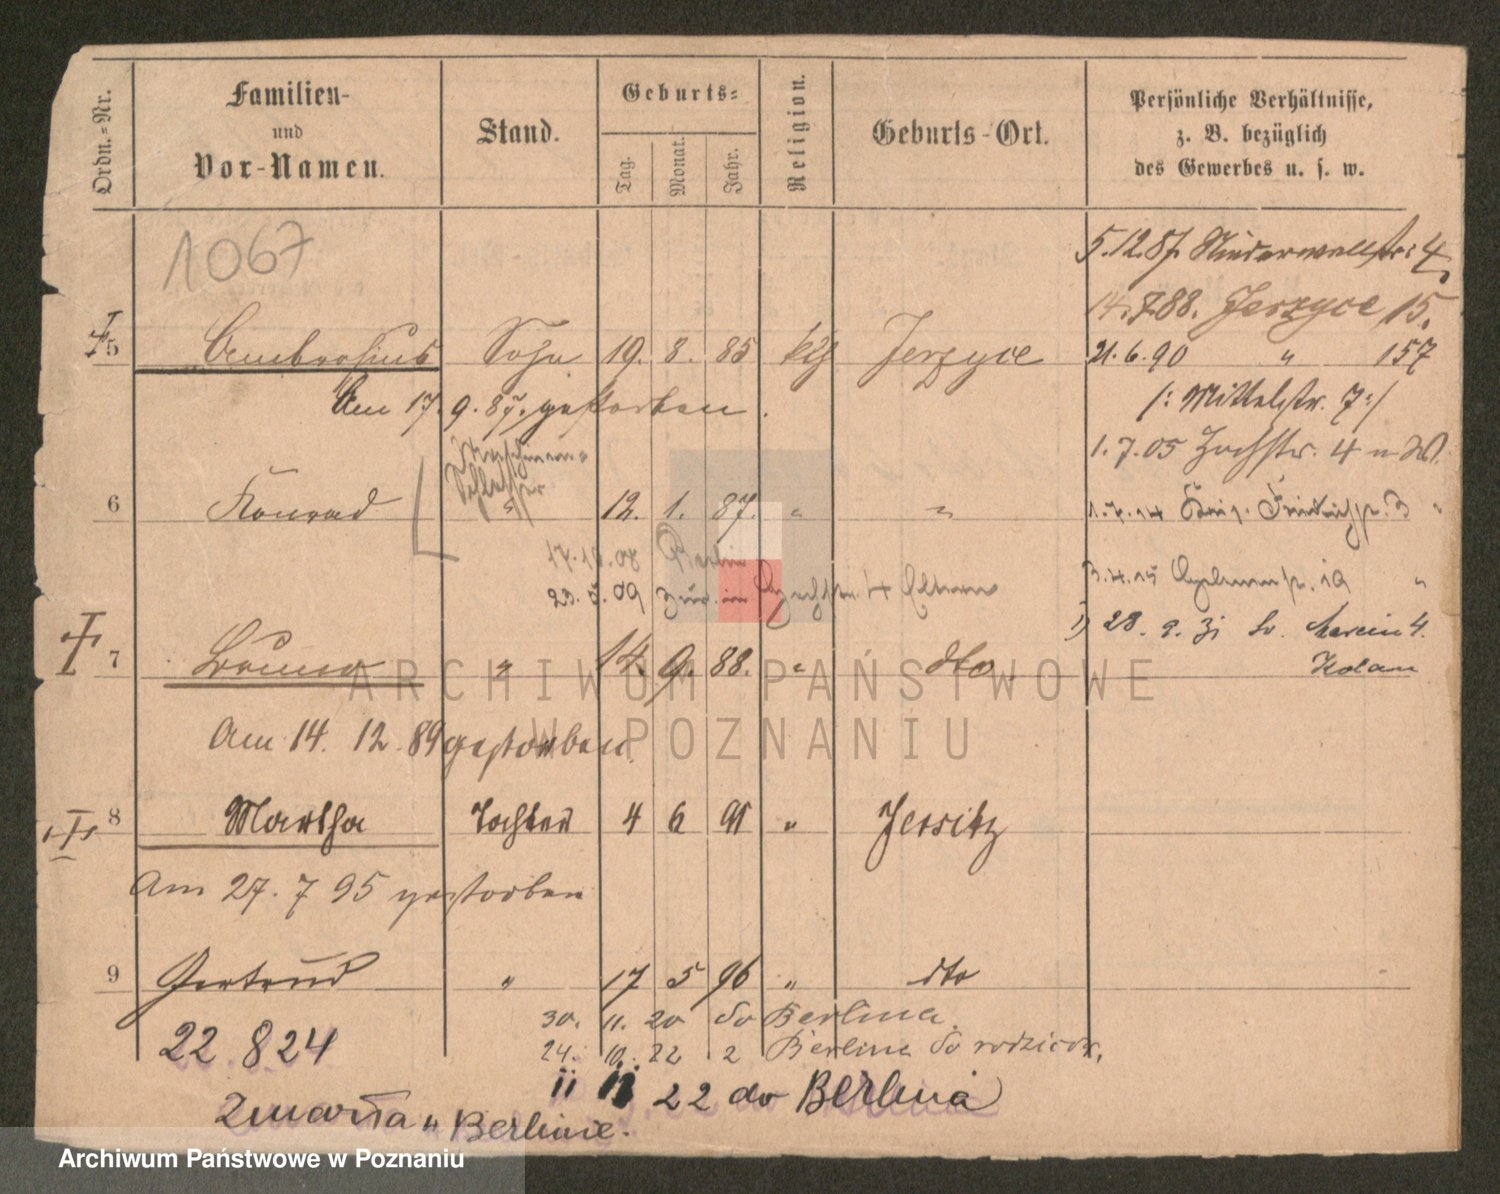 Ordn.-Nr.
Familien-
und
Vor-Namen.
Stand.
Geburts-
Tag.
Monat.
Jahr.
Religion.
Geburts-Ort.
Persönliche Verhältnisse,
z. B. bezüglich
des Gewerbes u. s. w.
1067
5.12.87. Niederwallstr: 4,
14.7.88. Jerzyce 15.
5 Ambrosius Sohn 19. 8. 85 kth Jerzyce
21.6.90 " 157
Am 17. 9. 87. gestorben.
/: Mittelstr. 7:/
1.7.05 Hochstr. 4 n W.
Maschinen
Schlosser
6 Konrad " 12. 1. 87. " "
1.7.14 3 "
17.10.08 Berlin
23.5.09 zur. in Hochstr. 4 Eltern
3.4.15 19 "
28. 9. 31 Św. Marcin 4.
7 Bruno " 14. 9. 88. " dto.
Am 14. 12. 89 gestorben.
8 Martha Tochter 4 6 91 " Jersitz
Am 27. 7 95 gestorben
9 Gertrud " 17 5 96 " dto
30. 11. 20 do Berlina.
22.8 24
24. 10. 22 z Berlina do rodziców.
11 11 22 do Berlina
Zmarła w Berlinie.
ARCHIWUM PAŃSTWOWE
W POZNANIU
Archiwum Państwowe w Poznaniu